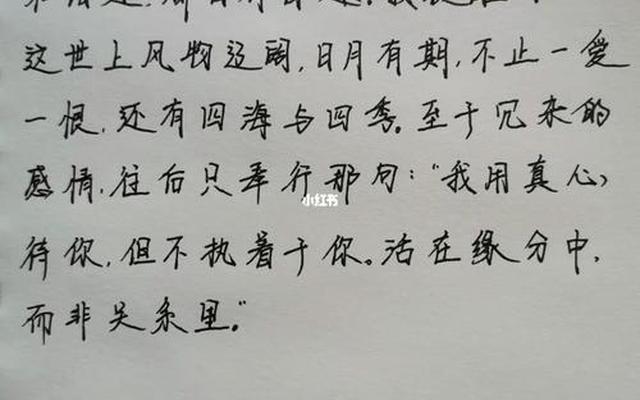 这世上风物辽阔,日月有期,不止一爱
一恨,还有四海与四季。至于冗杂的
感情,往后只奉行那句:“我用真心
小红书
待你,但不执着于你。活在缘分中,
而非关系里。”